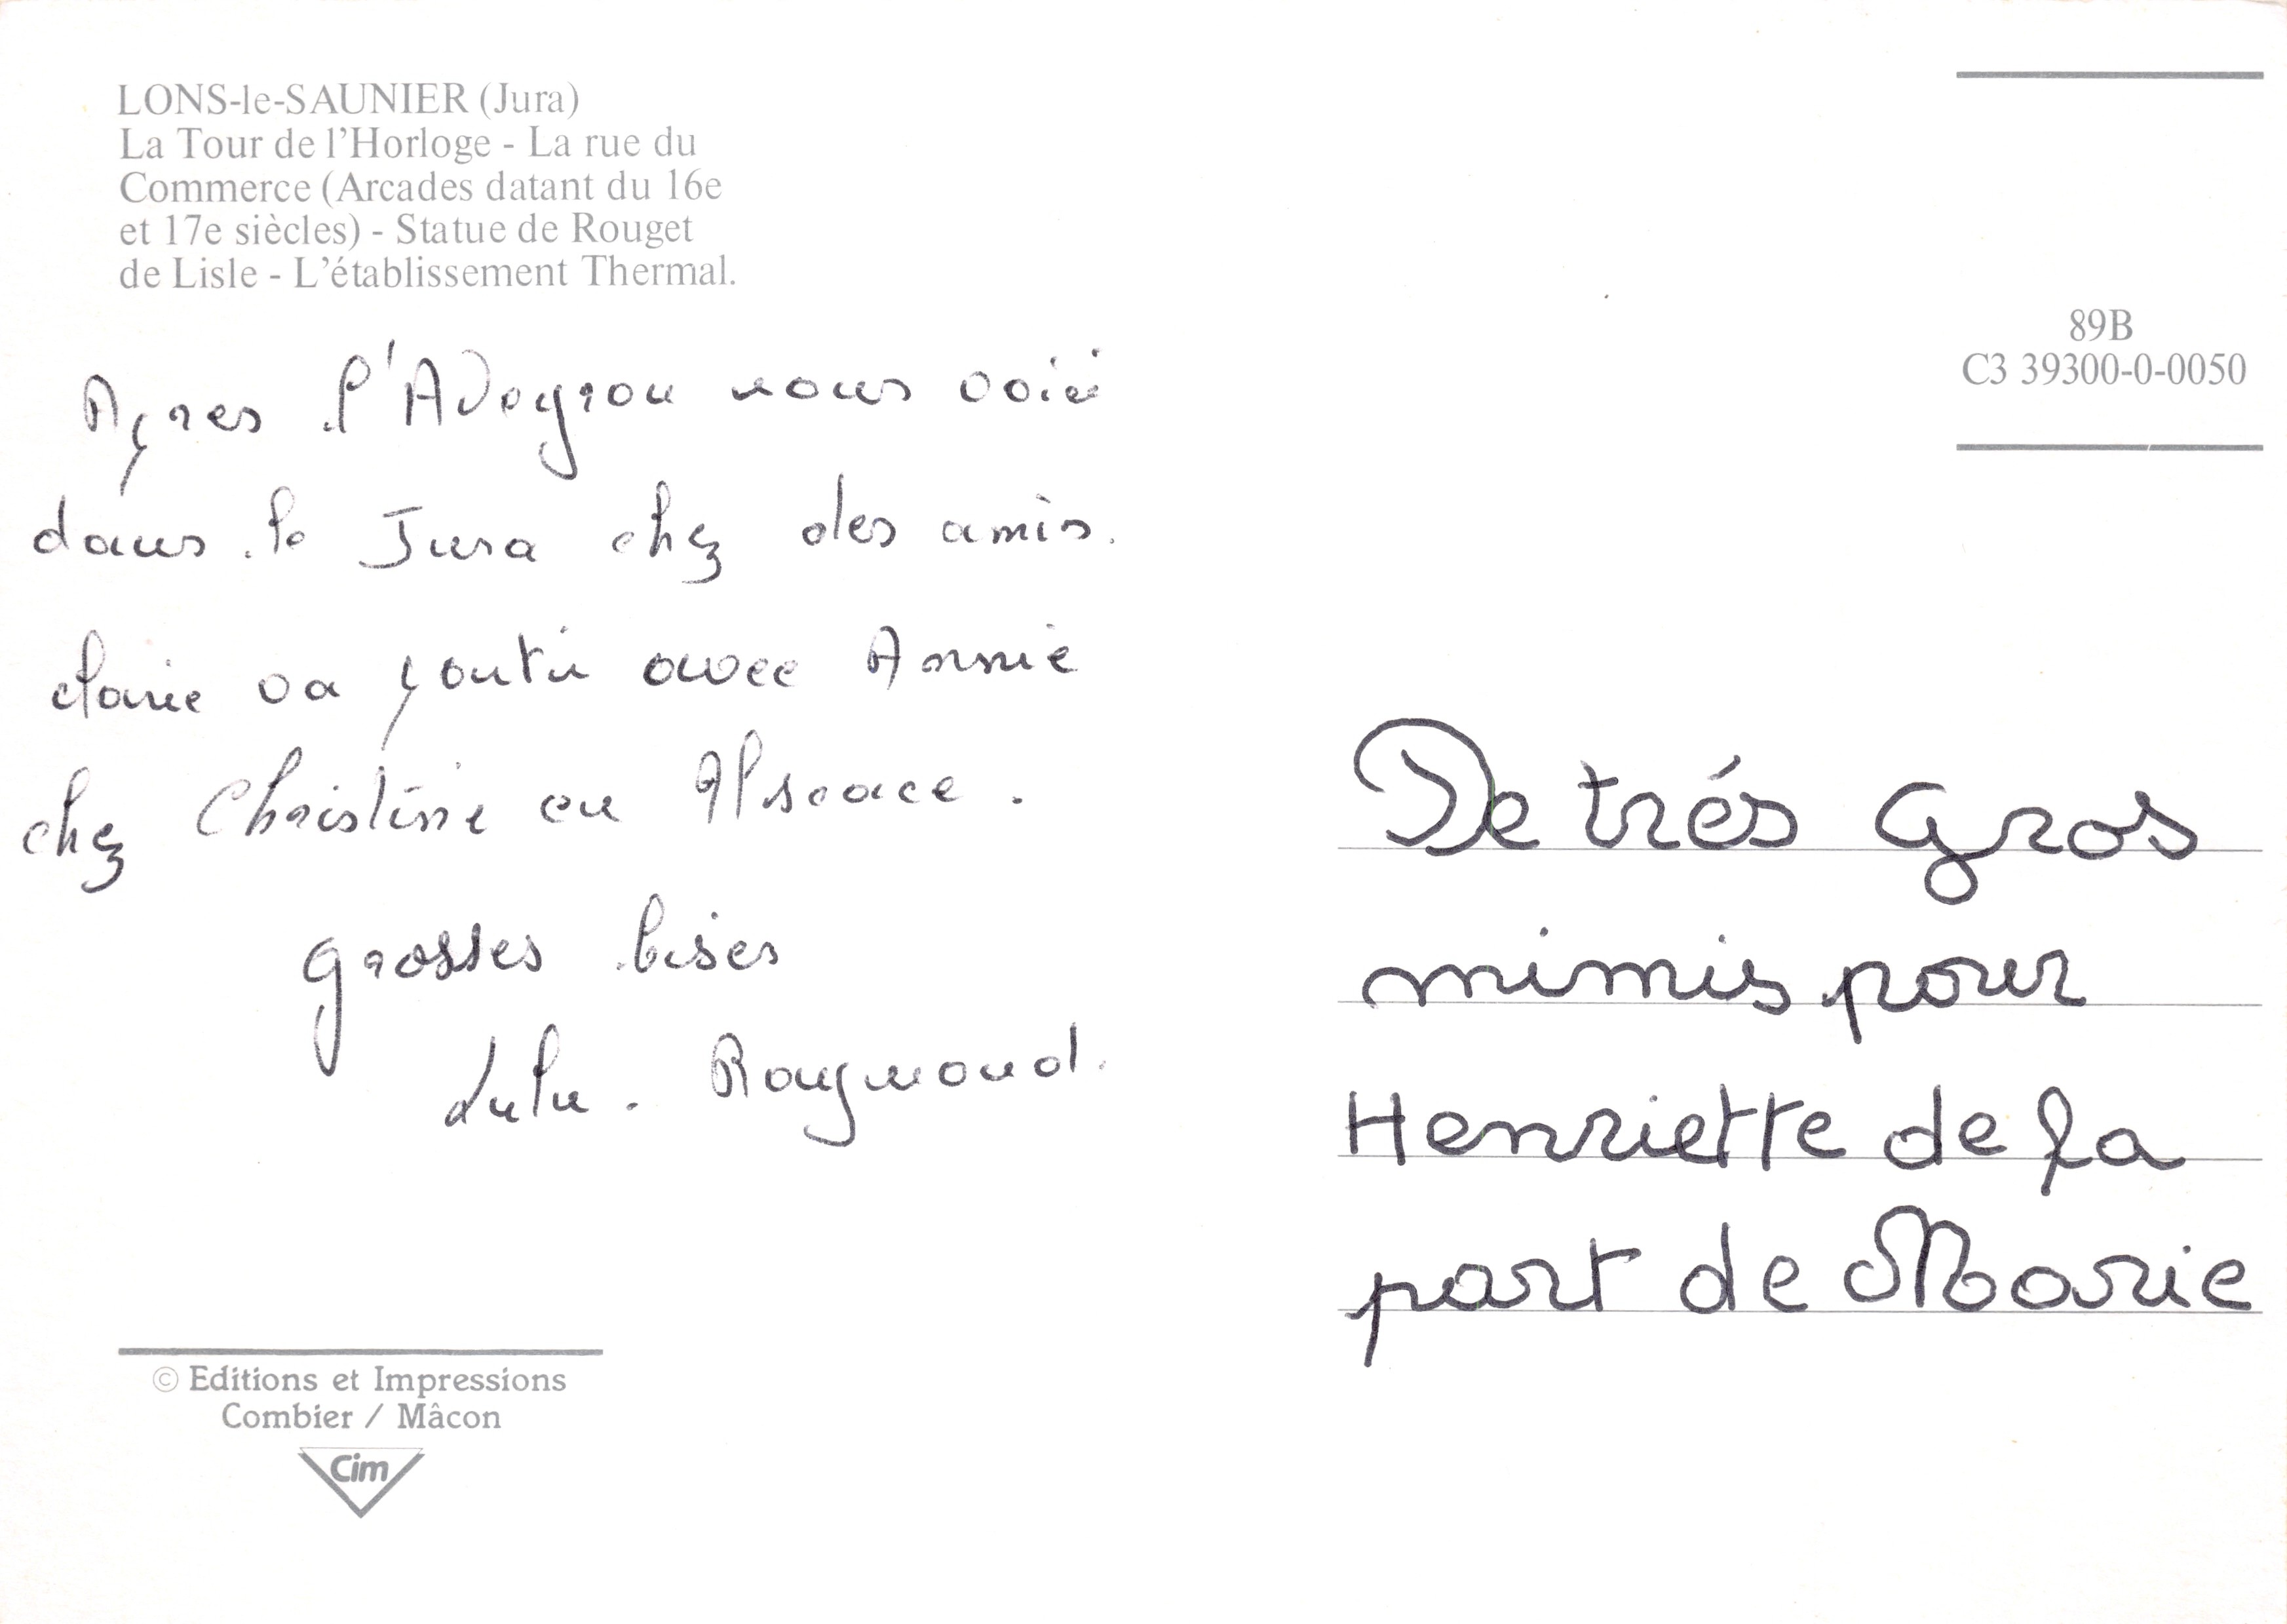 LONS-le-SAUNIER (Jura)
La Tour de l'Horloge - La rue du
Commerce (Arcades datant du 16e
et 17e siècles) - Statue de Rouget
de Lisle - L'établissement Thermal.
89B
C3 39300-0-0050
Apres l'Aveyron nous voici
dans le Jura chez des amis.
va partir avec Annie
chez Christine en Alsace.
grosses bises
Lulu. Raymond.
De trés Gros
mimis pour
Henriette de la
part de Marie
© Editions et Impressions
Combier / Mâcon
Cim